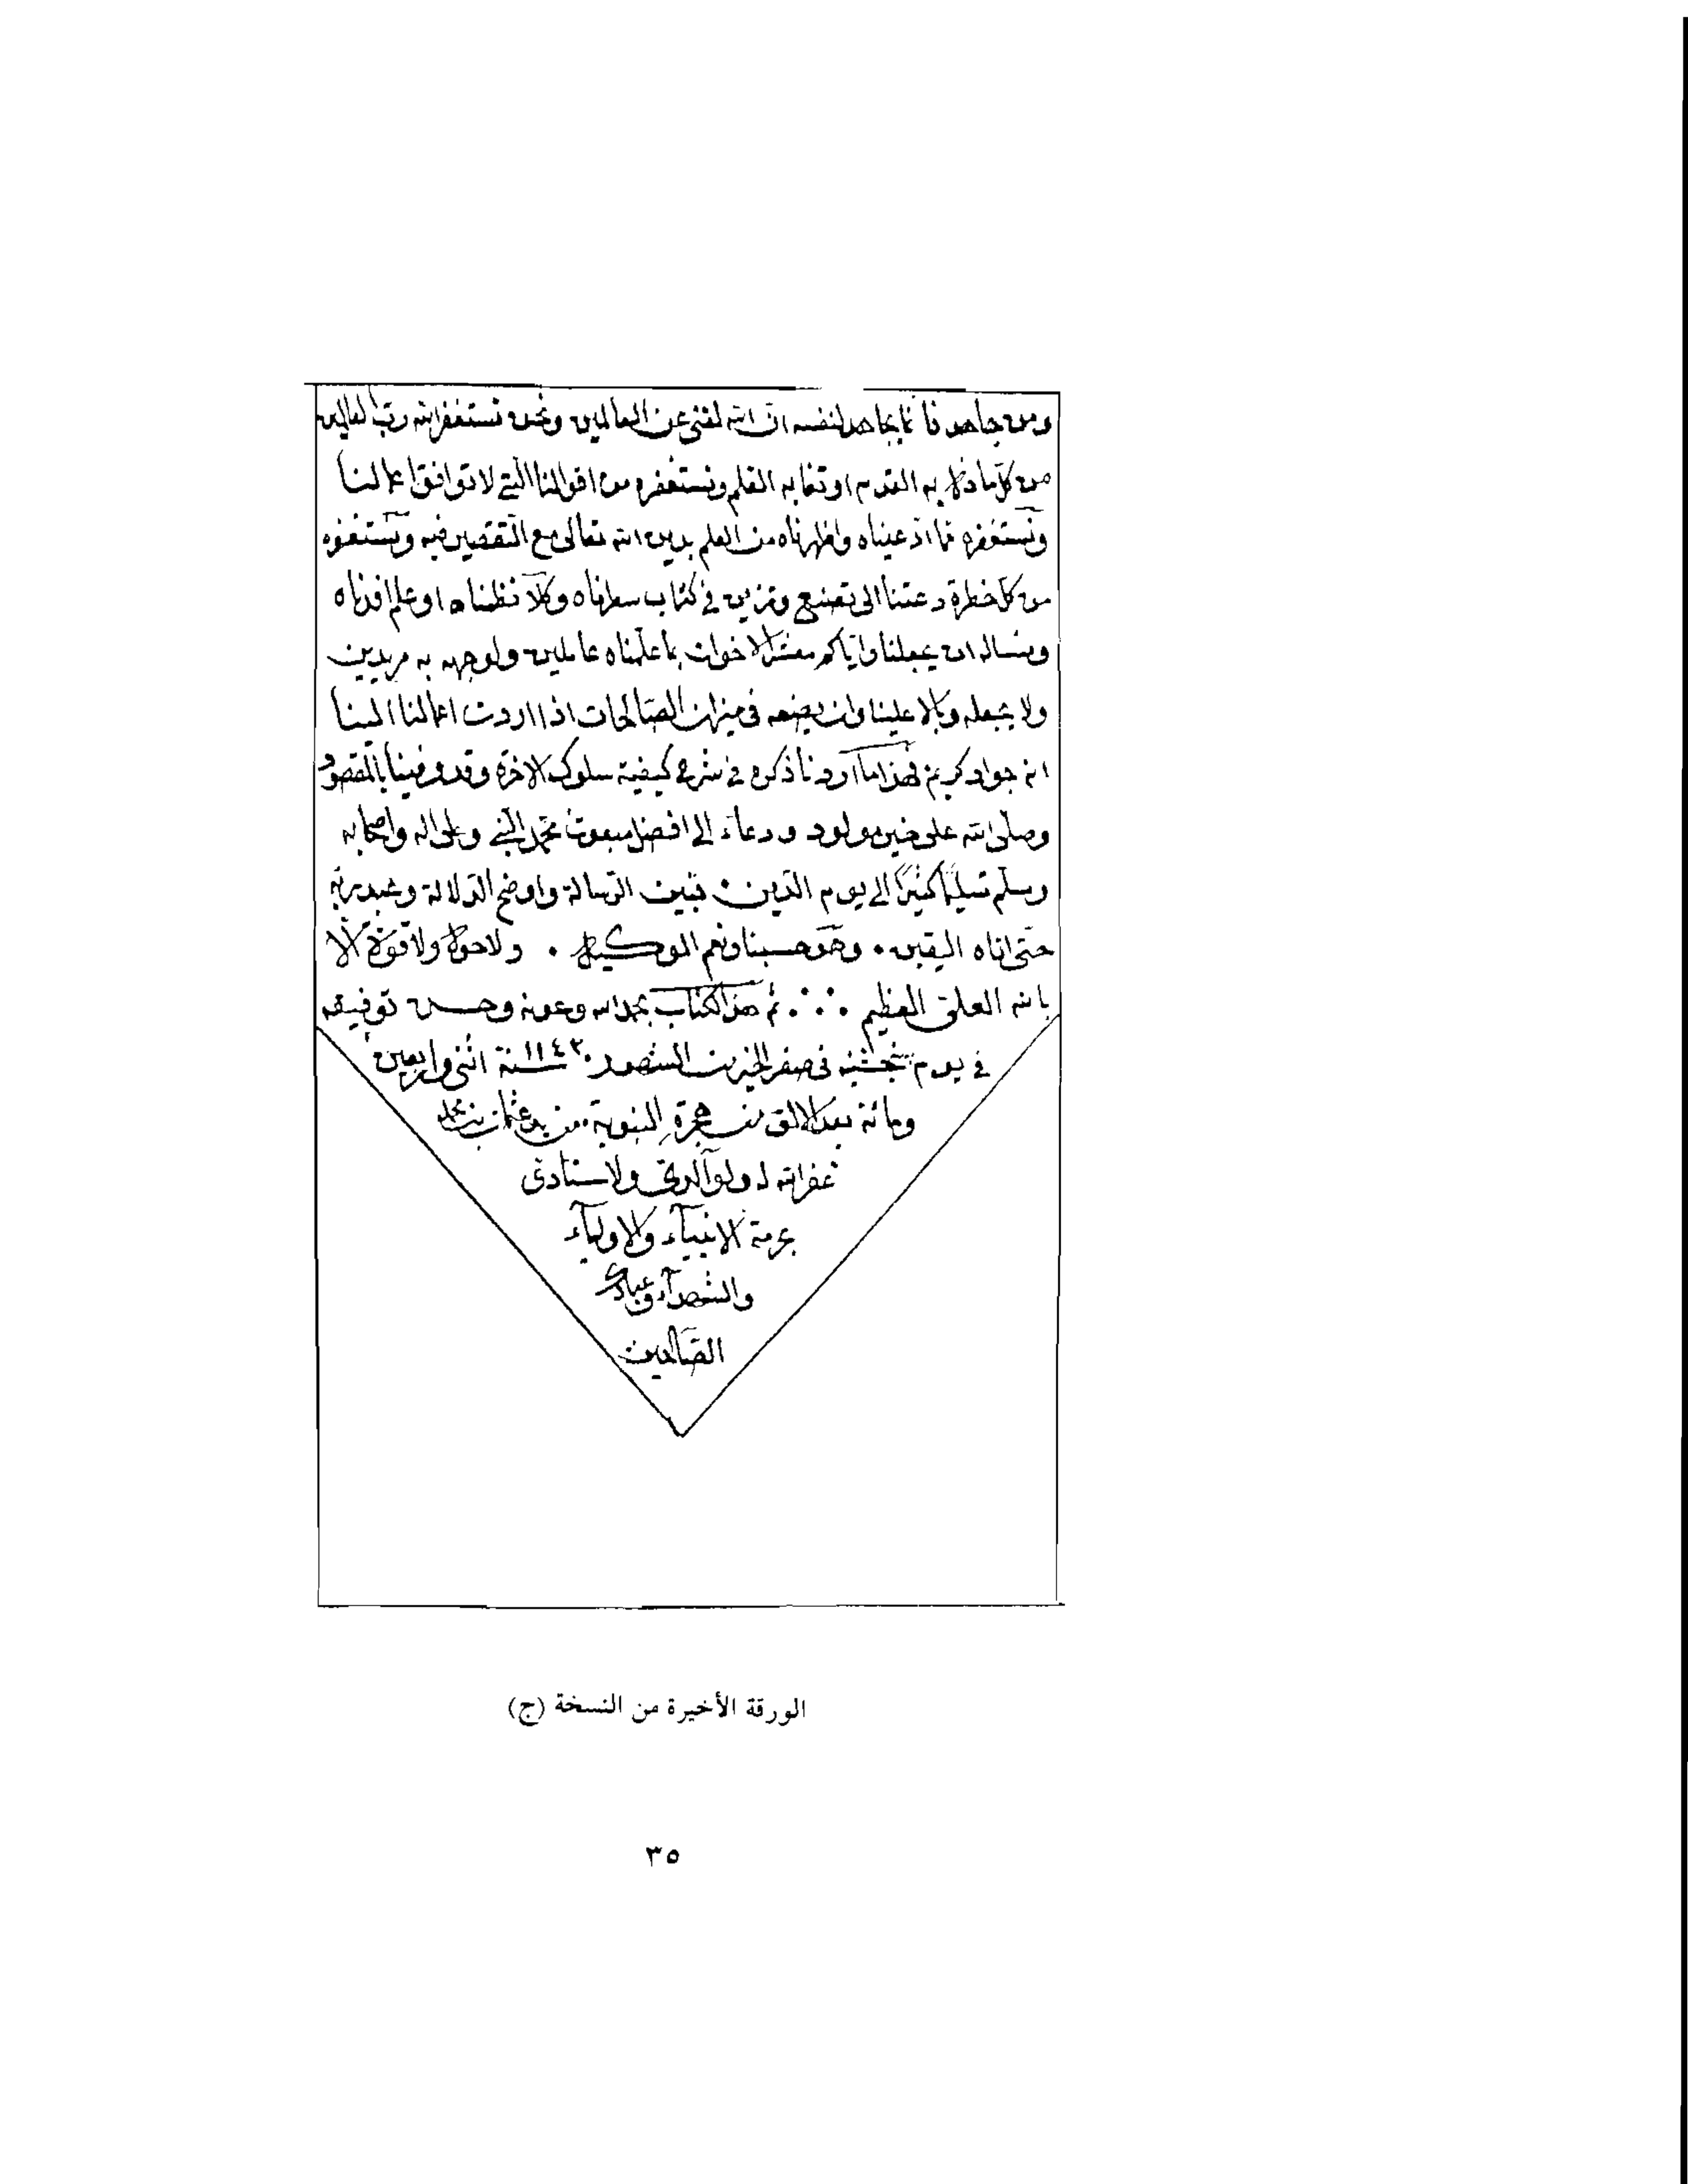 ومن جاهد فانما يجاهد لنفسه ان الله لغنى عن العالمين ونحن نستغفر الله رب العالمين
من كل ما ذل به القدم او تغا به القلم ونستغفره من اقوالنا التي لا توافق اعمالنا
ونستغفره مما ادعيناه واظهرناه من العلم بدين الله تعالى مع التقصير فيه ونستغفره
من كل خطرة دعتنا الى تصنع وتزين في كتاب سطرناه وكلا نظمناه او علم افدناه
ونساله ان يجعلنا واياكم معشر الاخوان بما علمناه عاملين ولوجهه به مريدين
ولا يجعله وبالا علينا وان يضعه في ميزان الصالحات اذا اردت اعمالنا الينا
انه جواد كريم فهذا ما اردنا ذكره في شرح كيفية سلوك الاخرة وقد وفينا بالمقصود
وصلى الله على خير مولود ودعاء الى افضل مبعوث محمد النبي وعلى اله واصحابه
وسلم تسليما كثيرا الى يوم الدين تبين الرسالة واوضح الدلالة وعبد ربه
حتى اتاه اليقين وهو حسبنا ونعم الوكيل ولا حول ولا قوة الا
بالله العلي العظيم تم هذا الكتاب بحمد الله وعونه وحسن توفيقه
في يوم پنجشنبه في صفر الخير من الشهور سنة اثنى واربعين
ومائة بعد الالف من هجرة النبوية من يد عثمان بن محمد
غفر الله له ولوالدي ولاستادى
بحرمة الانبياء والاولياء
والشهداء وعبادك
الصالحين
الورقة الأخيرة من النسخة (ج)
٣٥